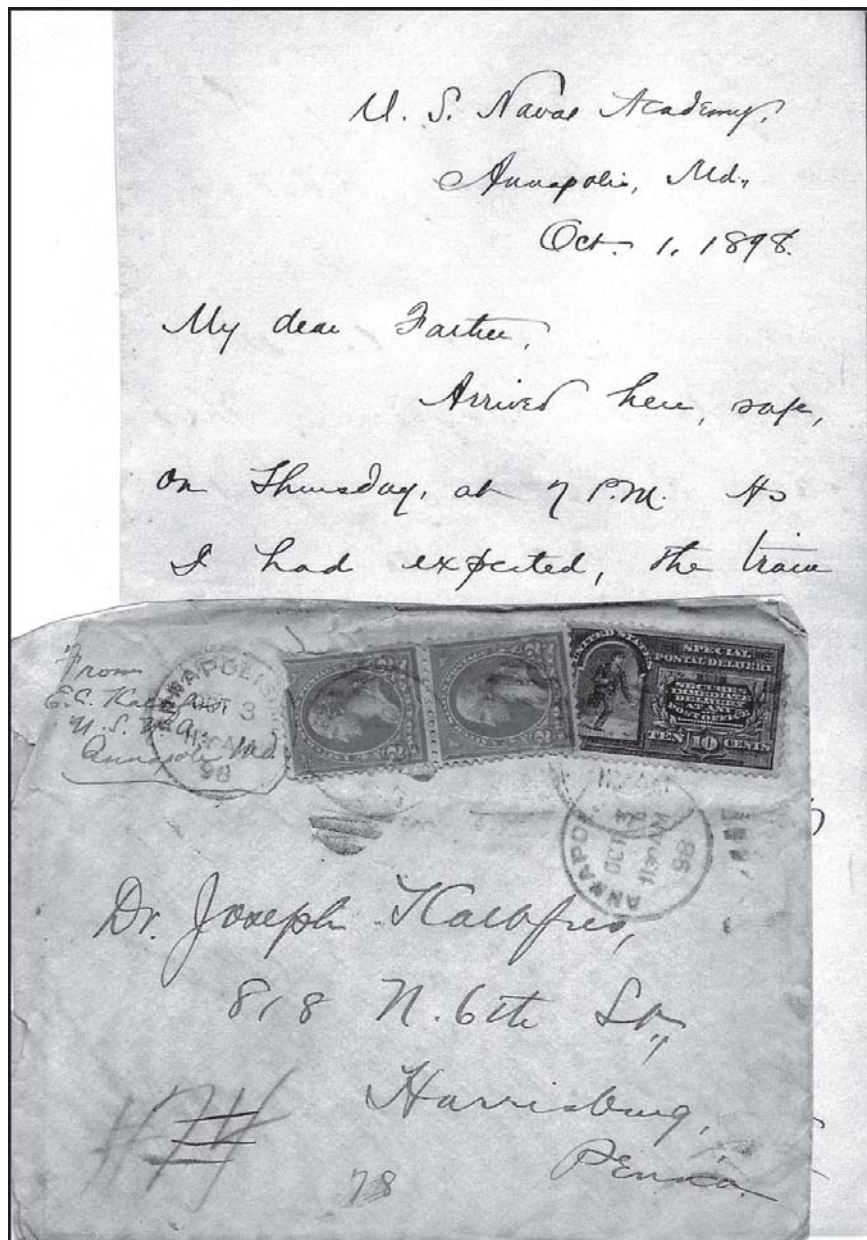 U. S. Naval Academy,
Annapolis, Md.,
Oct. 1, 1898.
My dear Father,
Arrived here, safe,
on Thursday, at 7 P.M. As
I had expected, the train
From
E.C.
U.S.N.A.
Annapolis Md.
ANNAPOLIS
OCT 3
98
UNITED STATES
SPECIAL
POSTAL DELIVERY
SECURES
IMMEDIATE
DELIVERY
AT ANY
POST OFFICE
TEN 10 CENTS
2 2
2 2
Dr. Joseph Kalbfus,
818 N. 6th St.,
Harrisburg,
Penna.
78